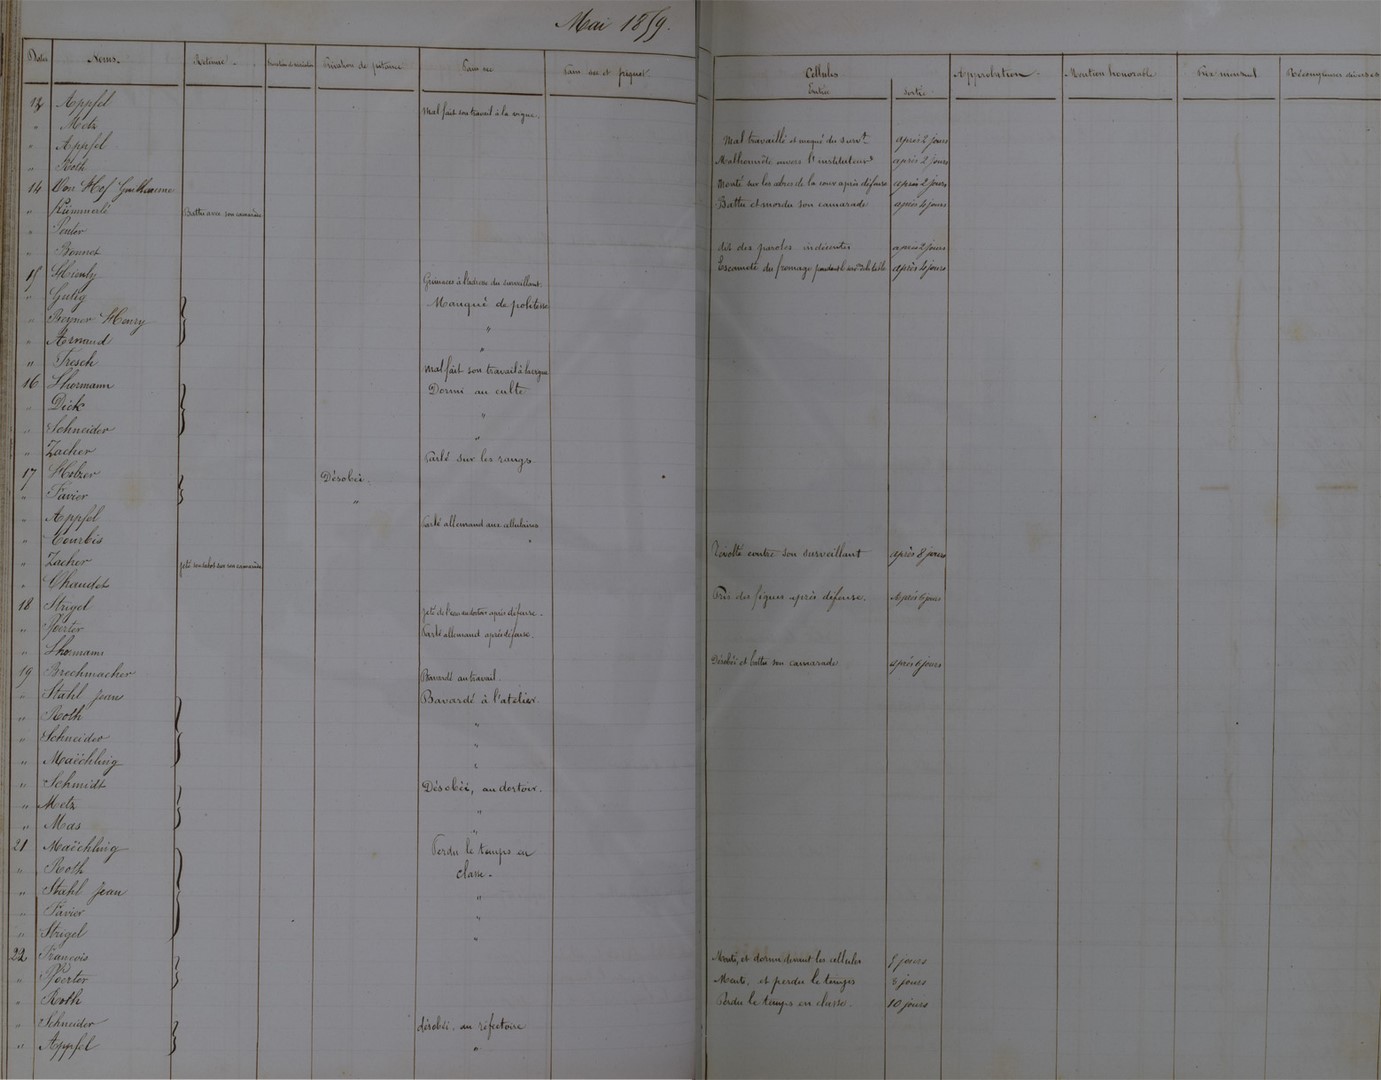 Mai 1859.
Dates Noms. Retenue. Privation de récréation Privation de pitance Pain sec Pain sec et piquet Cellules Entrée Sortie Approbation Mention honorable Prix mensuel Récompenses diverses
12 Appfel Mal fait son travail à la vigne.
" Metz Mal travaillé et moqué du survt. après 2 jours
" Appfel Malhonnête envers l'instituteur après 2 jours
" Roth Monté sur les arbres de la cour après défense après 2 jours
14 Von Hof Guillaume Battu et mordu son camarade après 4 jours
" Kümmerlé Battu avec son camarade
" dit des paroles indécentes après 2 jours
" Bonnet Escamoté du fromage pendant le service de table après 4 jours
15 Grimaces à l'adresse du surveillant.
" Gutig Manqué de politesse
" Henry "
" Armand "
" Fresch Mal fait son travail à la vigne
16 Dormi au culte
" Dick "
" Schneider "
" Zacher Parlé sur les rangs
17 Désobéi.
" Favier "
" Appfel Parlé allemand aux cellulaires
" Courbis Révolté contre son surveillant après 8 jours
" Zacher jeté son sabot sur son camarade
" Chaudet Pris des figues après défense. après jours
18 Strigel jeté de l'eau au dortoir après défense.
" Pforter Parlé allemand après défense.
" Désobéi et battu son camarade après 6 jours
19 Brechmacher Bavardé au travail.
" Stahl Jean Bavardé à l'atelier.
" Roth "
" Schneider "
" Maëchling "
" Schmidt Désobéi, au dortoir.
" Metz "
" Mas "
21 Maëchling Perdu le temps en
" Roth classe.
" Stahl Jean "
" Favier "
" Strigel "
22 François Menti, et dormi devant les cellules jours
" Pforter Menti, et perdu le temps jours
" Roth Perdu le temps en classe. 10 jours
" Schneider désobéi. au réfectoire
" Appfel "